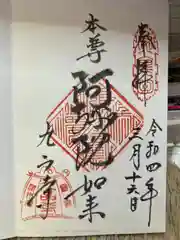 奉拝
令和四年
三月十六日
本尊
阿弥陀如来